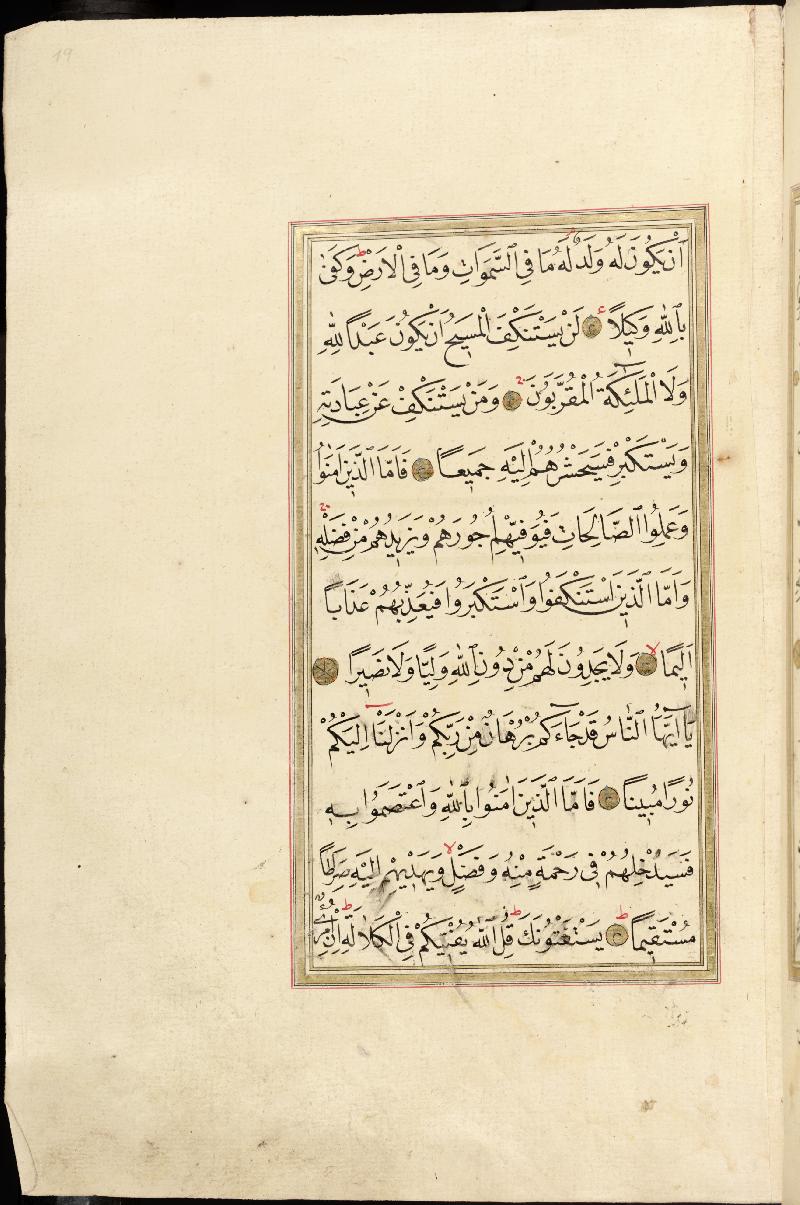 19
اَنْ يَكُونَ لَهُ وَلَدٌ لَهُ مَا فِى السَّمٰوَاتِ وَمَا فِى الْاَرْضِ ط وَكَفٰى
بِاللّٰهِ وَكِيلًا لَنْ يَسْتَنْكِفَ الْمَسِيحُ اَنْ يَكُونَ عَبْدًا لِلّٰهِ
وَلَا الْمَلٰئِكَةُ الْمُقَرَّبُونَ وَمَنْ يَسْتَنْكِفْ عَنْ عِبَادَتِهِ
وَيَسْتَكْبِرْ فَسَيَحْشُرُهُمْ اِلَيْهِ جَمِيعًا فَاَمَّا الَّذِينَ اٰمَنُوا
وَعَمِلُوا الصَّالِحَاتِ فَيُوَفِّيهِمْ اُجُورَهُمْ وَيَزِيدُهُمْ مِنْ فَضْلِهِ
وَاَمَّا الَّذِينَ اسْتَنْكَفُوا وَاسْتَكْبَرُوا فَيُعَذِّبُهُمْ عَذَابًا
اَلِيمًا لا وَلَا يَجِدُونَ لَهُمْ مِنْ دُونِ اللّٰهِ وَلِيًّا وَلَا نَصِيرًا
يَا اَيُّهَا النَّاسُ قَدْ جَاءَكُمْ بُرْهَانٌ مِنْ رَبِّكُمْ وَاَنْزَلْنَا اِلَيْكُمْ
نُورًا مُبِينًا فَاَمَّا الَّذِينَ اٰمَنُوا بِاللّٰهِ وَاعْتَصَمُوا بِهِ
فَسَيُدْخِلُهُمْ فِى رَحْمَةٍ مِنْهُ وَفَضْلٍ لا وَيَهْدِيهِمْ اِلَيْهِ صِرَاطًا
مُسْتَقِيمًا ط يَسْتَفْتُونَكَ ط قُلِ اللّٰهُ يُفْتِيكُمْ فِى الْكَلَالَةِ ط اِنِ امْرُؤٌ